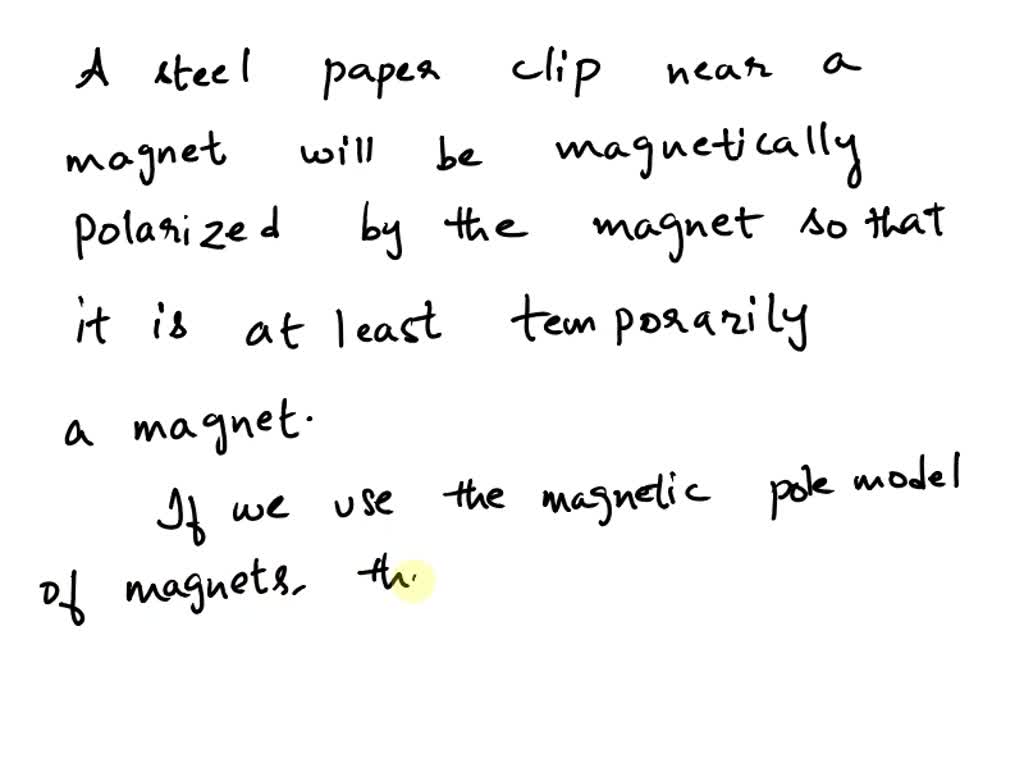 A steel paper clip near a
magnet will be magnetically
polarized by the magnet so that
it is at least temporarily
a magnet.
If we use the magnetic pole model
of magnets, th